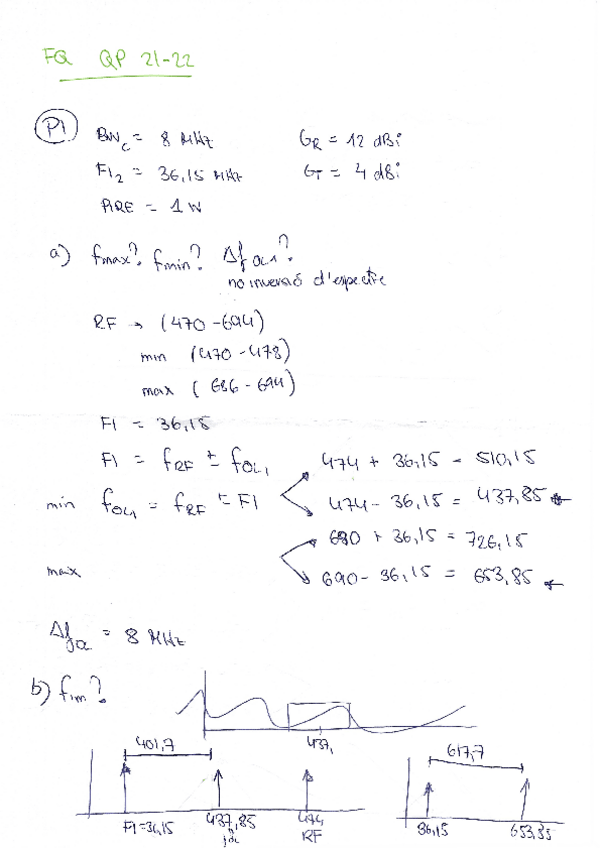 FQ QP 21-22
P1
BWc = 8 MHz GR = 12 dBi
FI2 = 36,15 MHz GT = 4 dBi
PIRE = 1 W
a) fmax? fmin? Δf OL1?
no inversió d'espectre
RF → (470-694)
min (470-478)
max (686-694)
FI = 36,15
FI = fRF ± fOL1 474 + 36,15 = 510,15
min fOL1 = fRF ± FI 474 - 36,15 = 437,85 ←
690 + 36,15 = 726,15
max 690 - 36,15 = 653,85 ←
Δf OL = 8 MHz
b) fim?
437,
401,7 617,7
FI=36,15 437,85 474 36,15 653,85
fOL RF